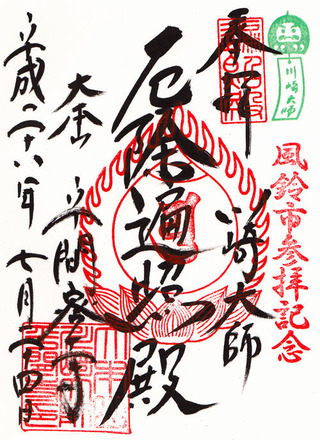 川崎大師
風鈴市参拝記念
奉拝
川崎大師
厄除遍照殿
大本山 平間寺
平成二十八年七月二十四日